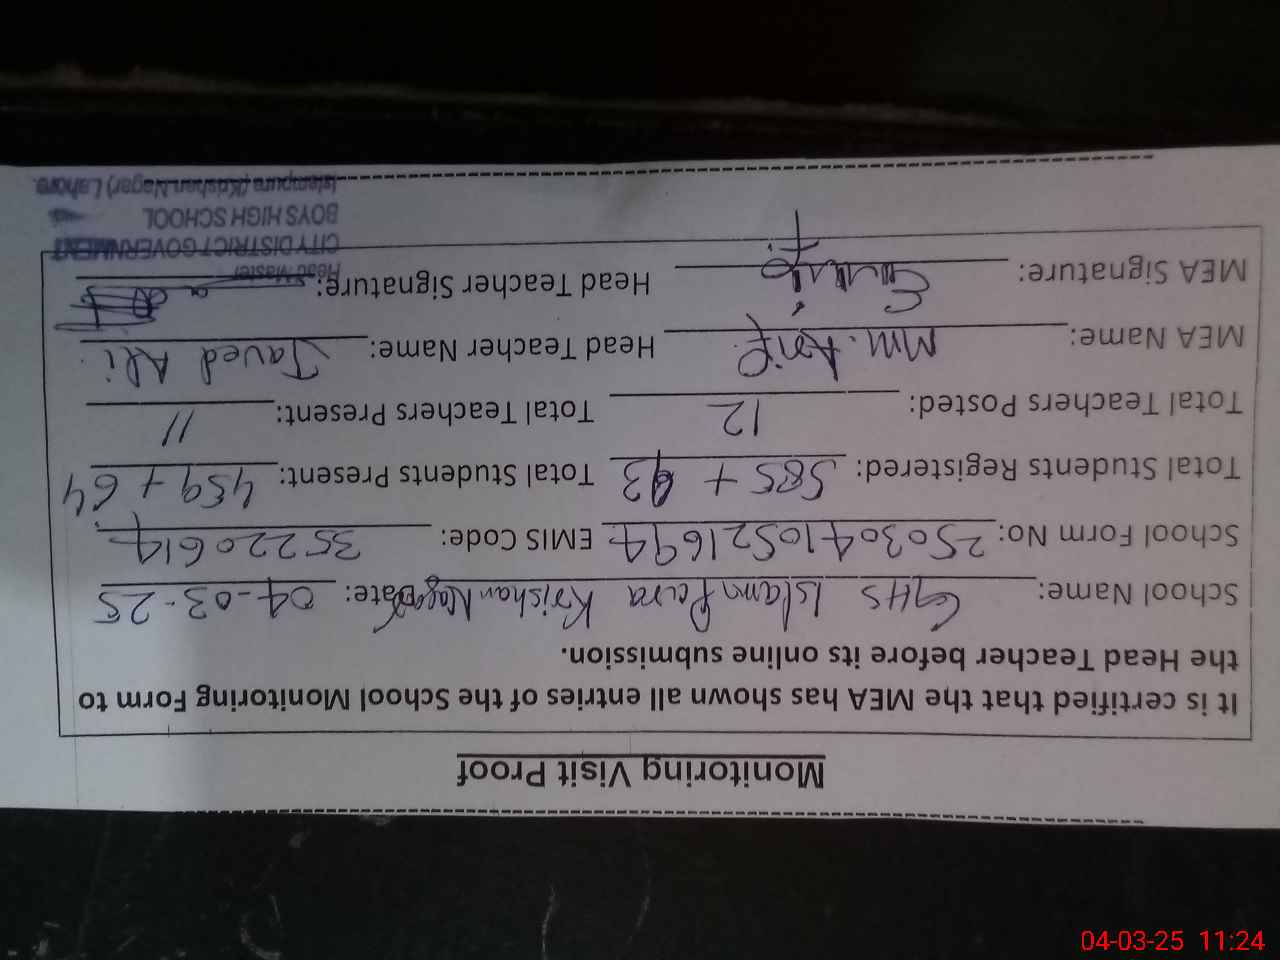 Monitoring Visit Proof
It is certified that the MEA has shown all entries of the School Monitoring Form to
the Head Teacher before its online submission.
School Name: GHS Islam Pura Krishan Nagar Date: 04-03-25
School Form No: 25030410521694 EMIS Code: 35220614
Total Students Registered: 585 + 93 Total Students Present: 459 + 64
Total Teachers Posted: 12 Total Teachers Present: 11
MEA Name: MM. Arif Head Teacher Name: Javed Ali
MEA Signature: Head Teacher Signature:
Head Master
CITY DISTRICT GOVERNMENT
BOYS HIGH SCHOOL
Islampura (Krishan Nagar) Lahore.
04-03-25 11:24